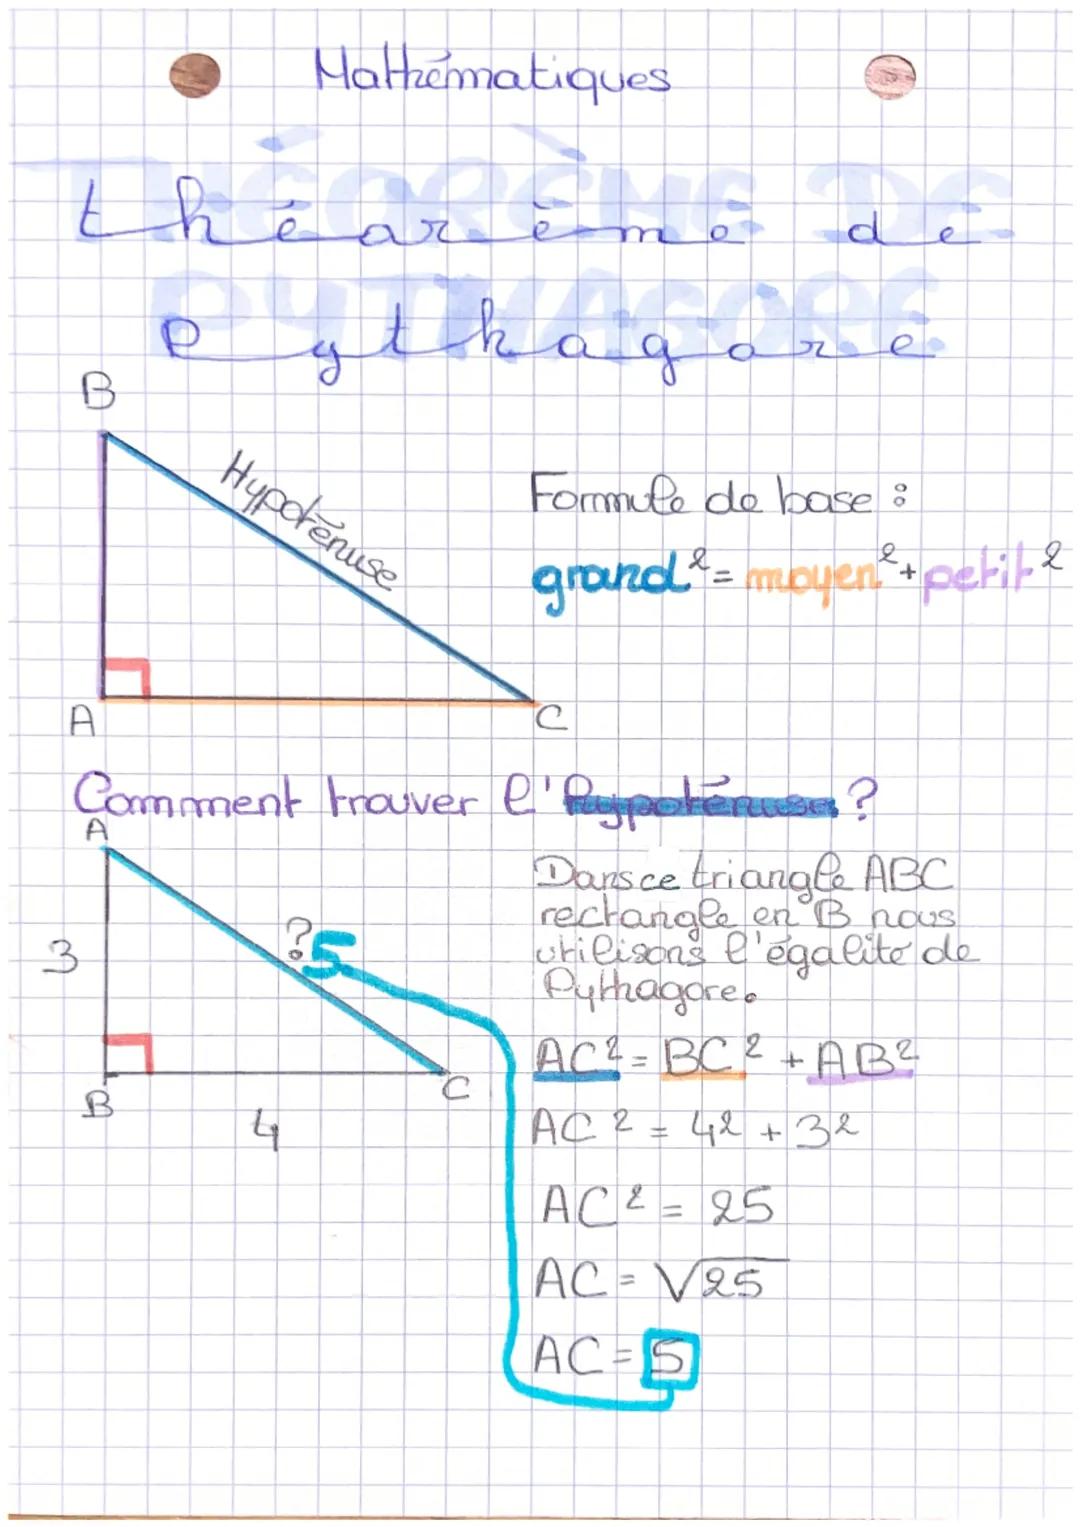 Mathématiques
THÉORÈME DE
théorème de
PYTHAGORE
pythagore
B
Hypoténuse
Formule de base :
grand² = moyen² + petit²
A
C
Comment trouver l'hypoténuse ?
A
Dans ce triangle ABC
rectangle en B nous
utilisons l'égalité de
Pythagore.
3
? 5
AC² = BC² + AB²
B
C
4
AC² = 4² + 3²
AC² = 25
AC = √25
AC = 5